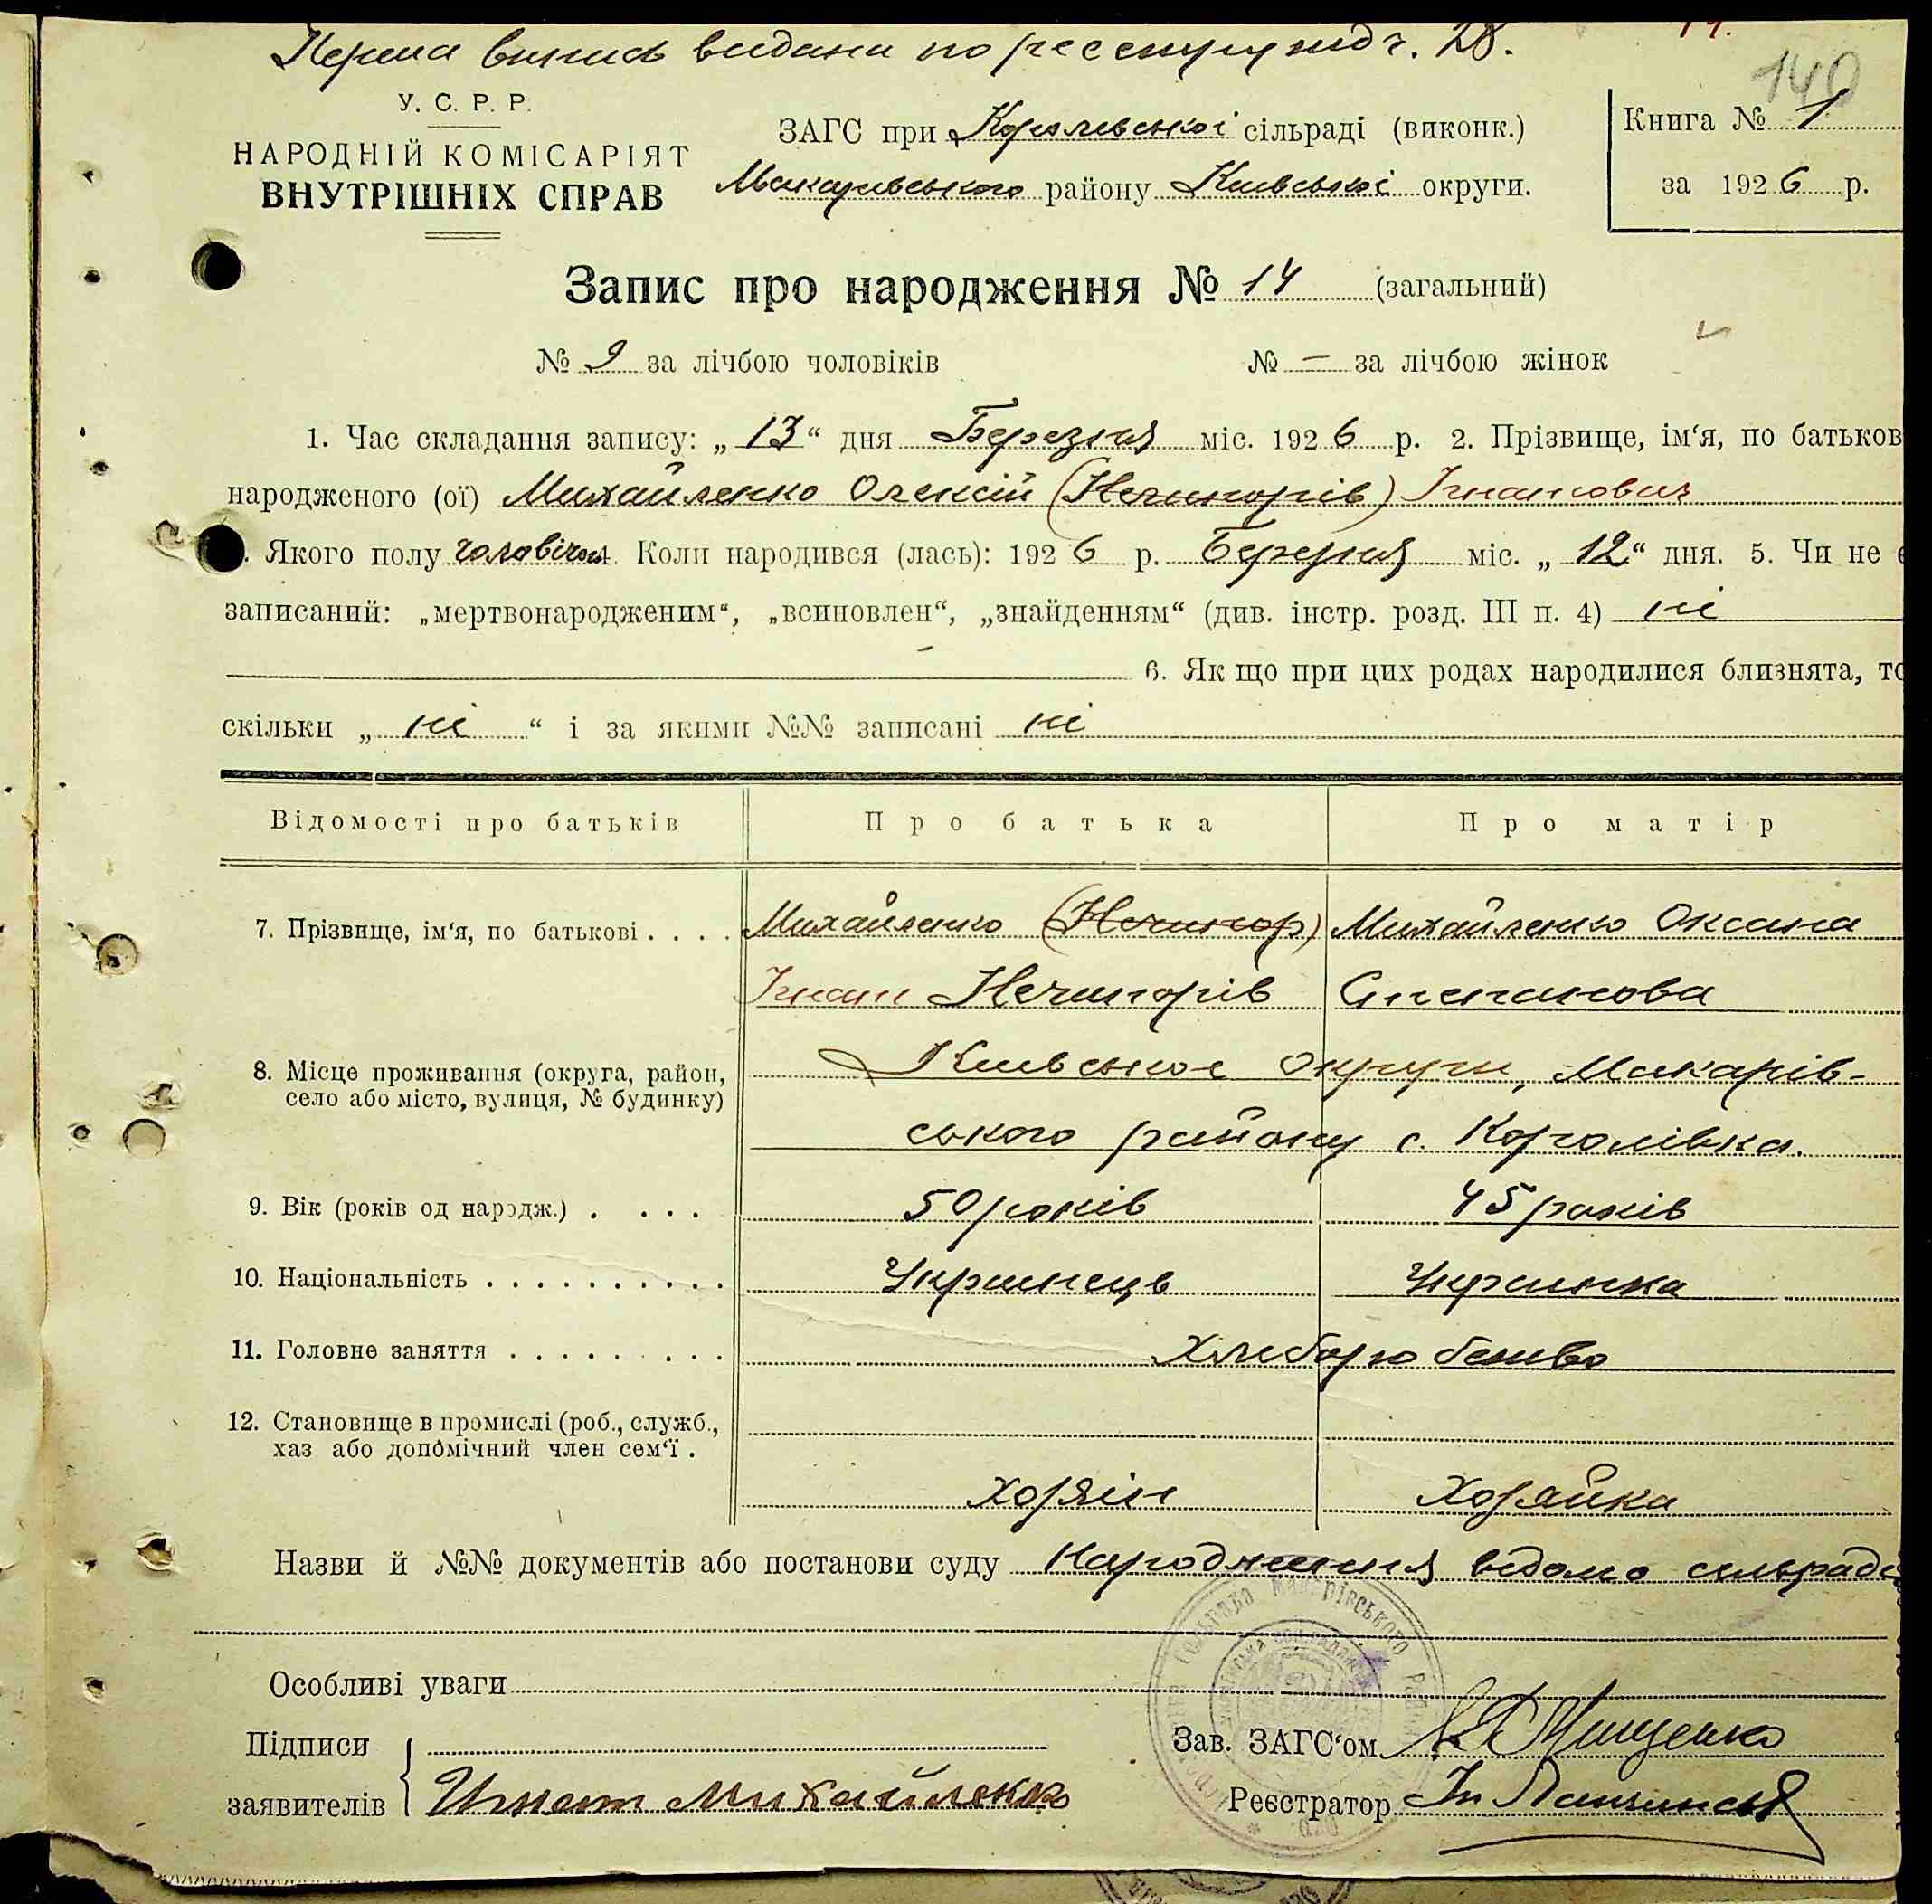 Перша випись видана по реєстру під ч. 28.
140
У. С. Р. Р.
НАРОДНІЙ КОМІСАРІЯТ
ВНУТРІШНІХ СПРАВ
ЗАГС при Королевської сільраді (виконк.)
Макарівського району Київської округи.
Книга № 1
за 1926 р.
Запис про народження № 14 (загальний)
№ 9 за лічбою чоловіків № — за лічбою жінок
1. Час складання запису: „13“ дня Березня міс. 1926 р. 2. Прізвище, ім‘я, по батьков
народженого (ої) Михайленко Олексій (Нечипорів) Ігнатович
. Якого полу чоловічої 4. Коли народився (лась): 1926 р. Березня міс. „12“ дня. 5. Чи не є
записаний: „мертвонародженим“, „всиновлен“, „знайденням“ (див. інстр. розд. III п. 4) ні
6. Як що при цих родах народилися близнята, то
скільки „ ні “ і за якими №№ записані ні
Відомості про батьків Про батька Про матір
7. Прізвище, ім‘я, по батькові . . . . Михайленко (Нечипор) Михайленко Оксана
Ігнат Нечипорів Степанова
8. Місце проживання (округа, район, село або місто, вулиця, № будинку) Київської округи, Макарів-
ського району с. Королівка.
9. Вік (років од народж.) . . . . 50 років 45 років
10. Національність . . . . . . . . . . Українець Українка
11. Головне заняття . . . . . . . . . Хліборобство
12. Становище в промислі (роб., служб.,
хаз або допомічний член сем‘ї .
Хозяїн Хозяйка
Назви й №№ документів або постанови суду Народження відомо сільраді
Особливі уваги
Підписи
заявителів Игнат Михайленко
Зав. ЗАГС‘ом
Реєстратор